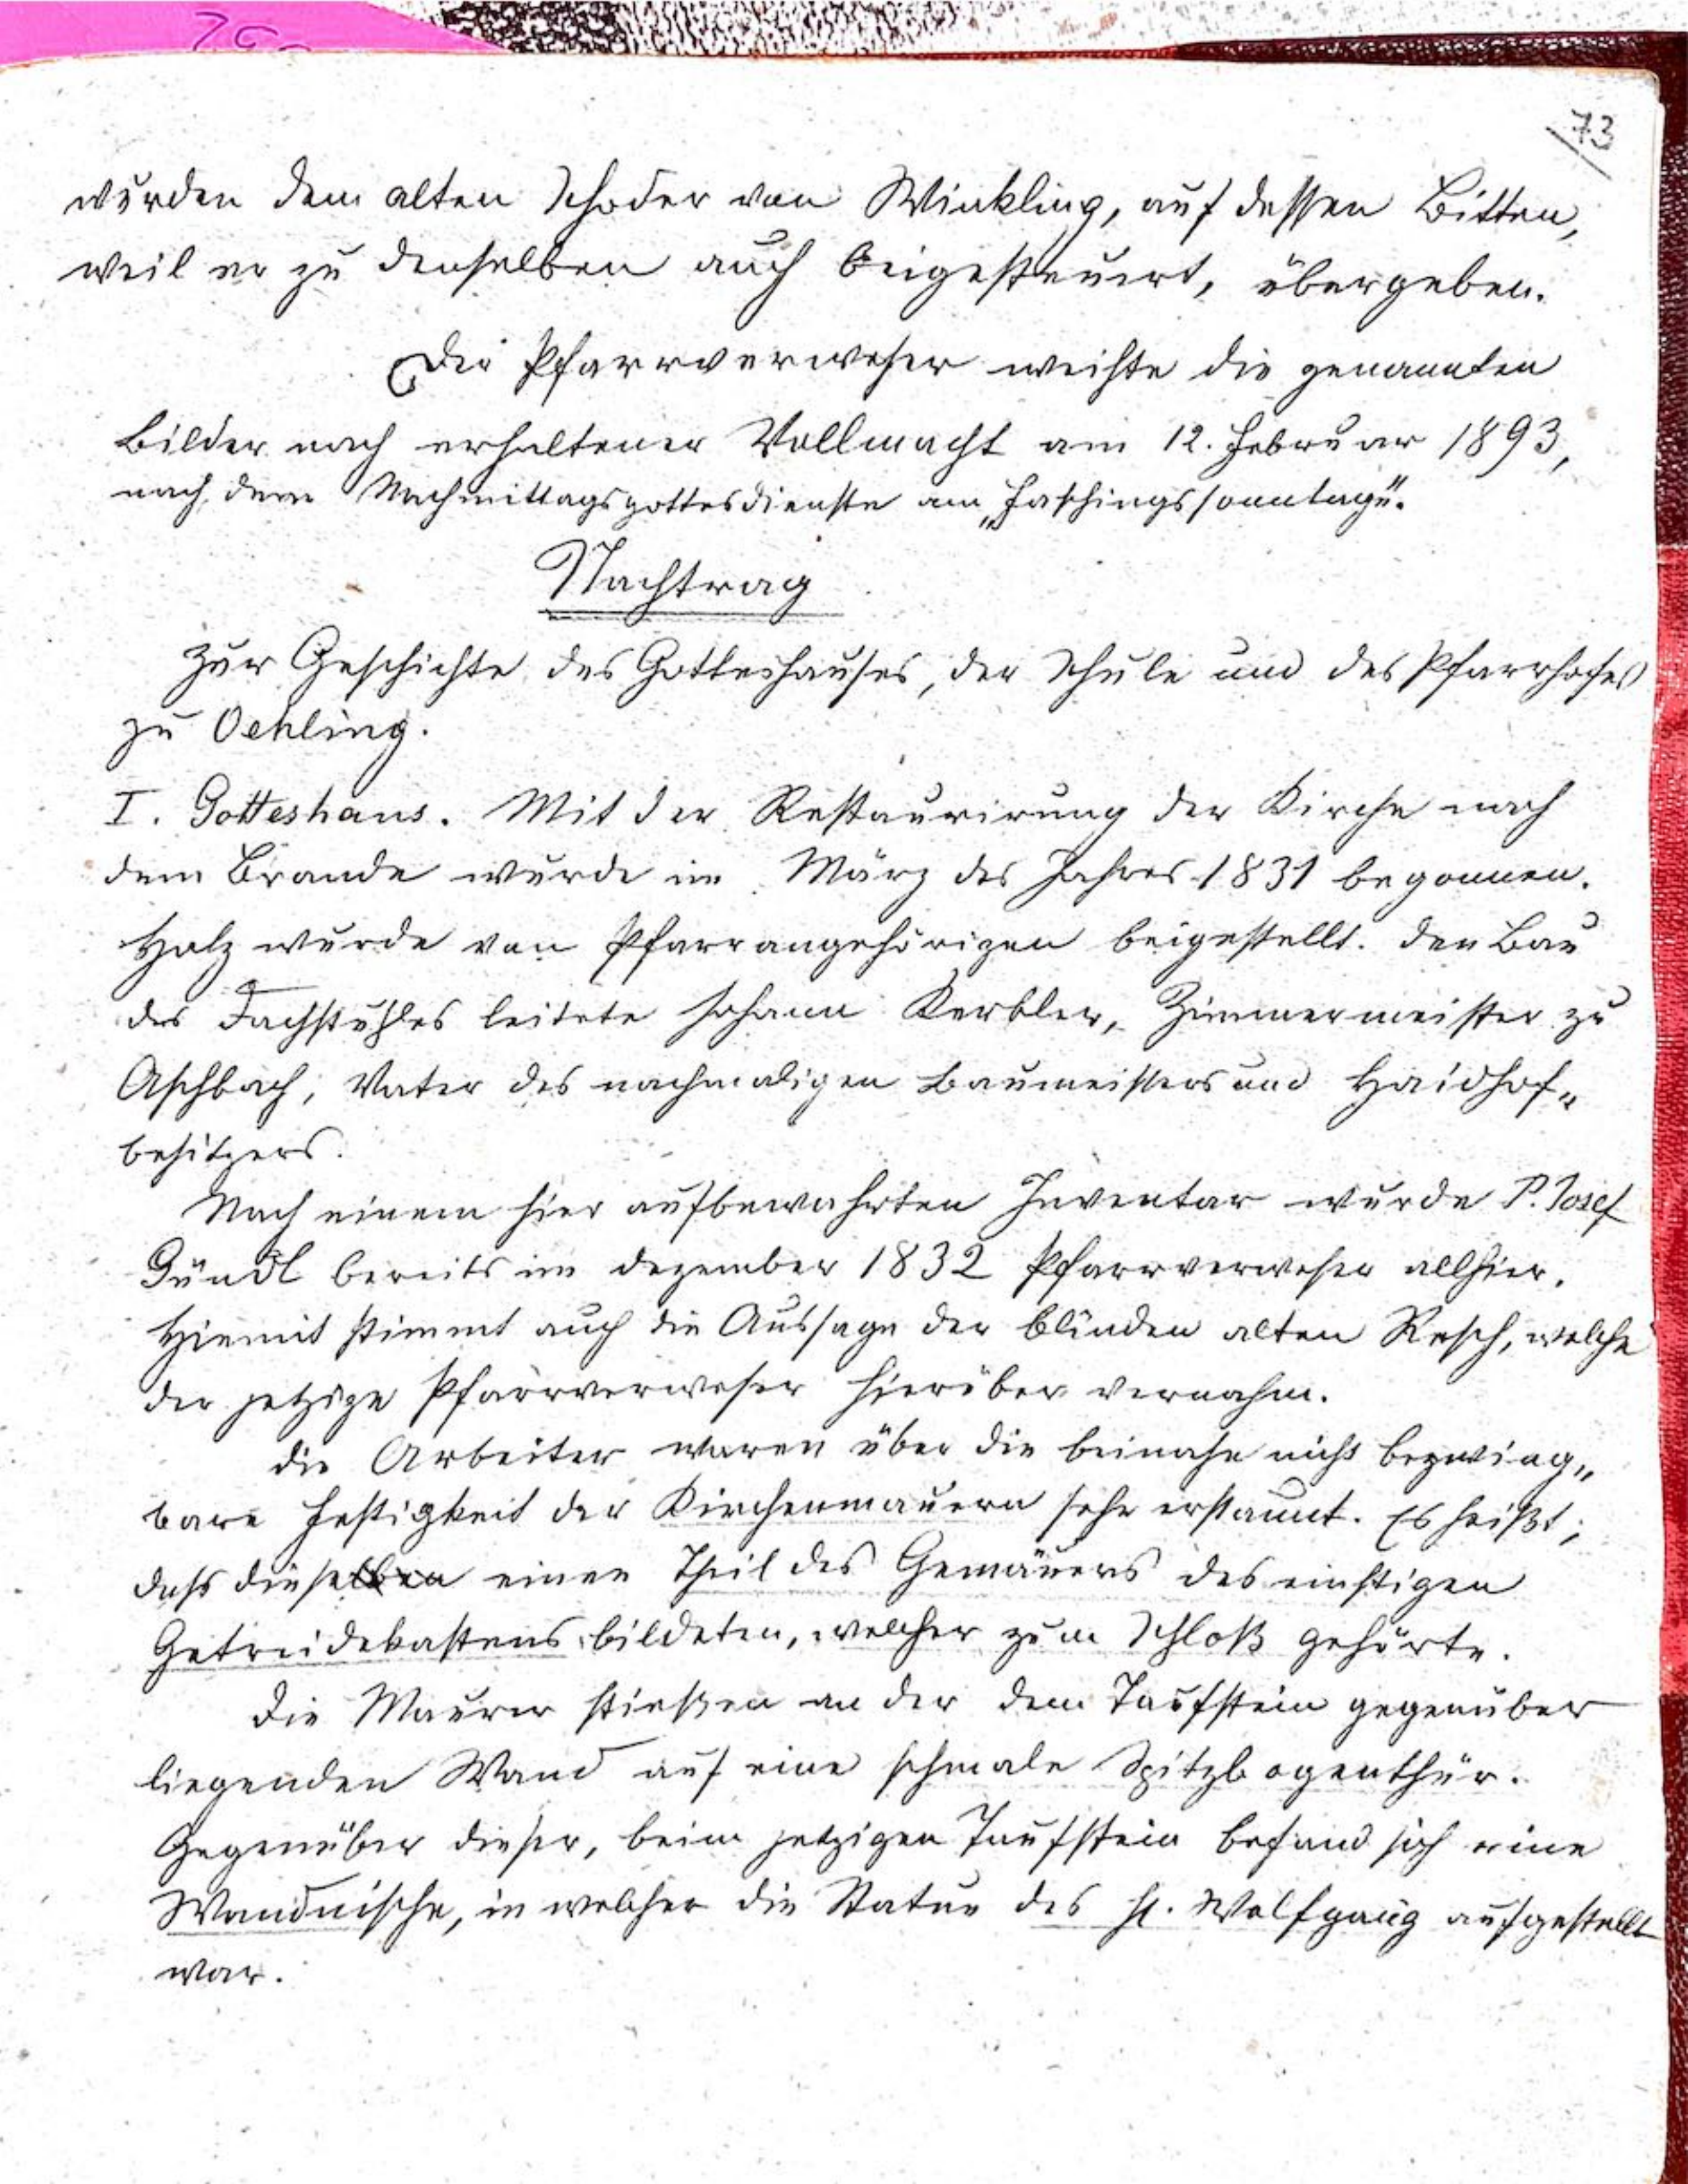 73
wurden dem alten Schoder von Winkling, auf dessen Bitten,
weil er zu denselben auch beigesteuert, übergeben.
Der Pfarrverweser weihte die genannten
Bilder nach erhaltener Vollmacht am 12. Februar 1893,
nach dem Nachmittagsgottesdienste am „Faschingssonntage“.
Nachtrag
zur Geschichte des Gotteshauses, der Schule und des Pfarrhofes
zu Oehling.
I. Gotteshaus. Mit der Restaurirung der Kirche nach
dem Brande wurde im März des Jahres 1831 begonnen.
Holz wurde von Pfarrangehörigen beigestellt. Den Bau
des Dachstuhles leitete Johann Kerbler, Zimmermeister zu
Aschbach, Vater des nachmaligen Baumeisters und Haidhof„
besitzers.
Nach einem hier aufbewahrten Inventar wurde P. Josef
Gündl bereits im Dezember 1832 Pfarrverweser allhier.
Hiemit stimmt auch die Aussage der blinden alten Resch, welche
der jetzige Pfarrverweser hierüber vernahm.
Die Arbeiter waren über die beinahe nicht bezwing„
bare Festigkeit der Kirchenmauern sehr erstaunt. Es heißt,
dass dieselben einen Theil des Gemäuers des einstigen
Getreidekastens bildeten, welcher zum Schloß gehörte.
Die Maurer stießen an der dem Taufstein gegenüber
liegenden Wand auf eine schmale Spitzbogenthür.
Gegenüber dieser, beim jetzigen Taufstein befand sich eine
Wandnische, in welcher die Statue des hl. Wolfgang aufgestellt
war.